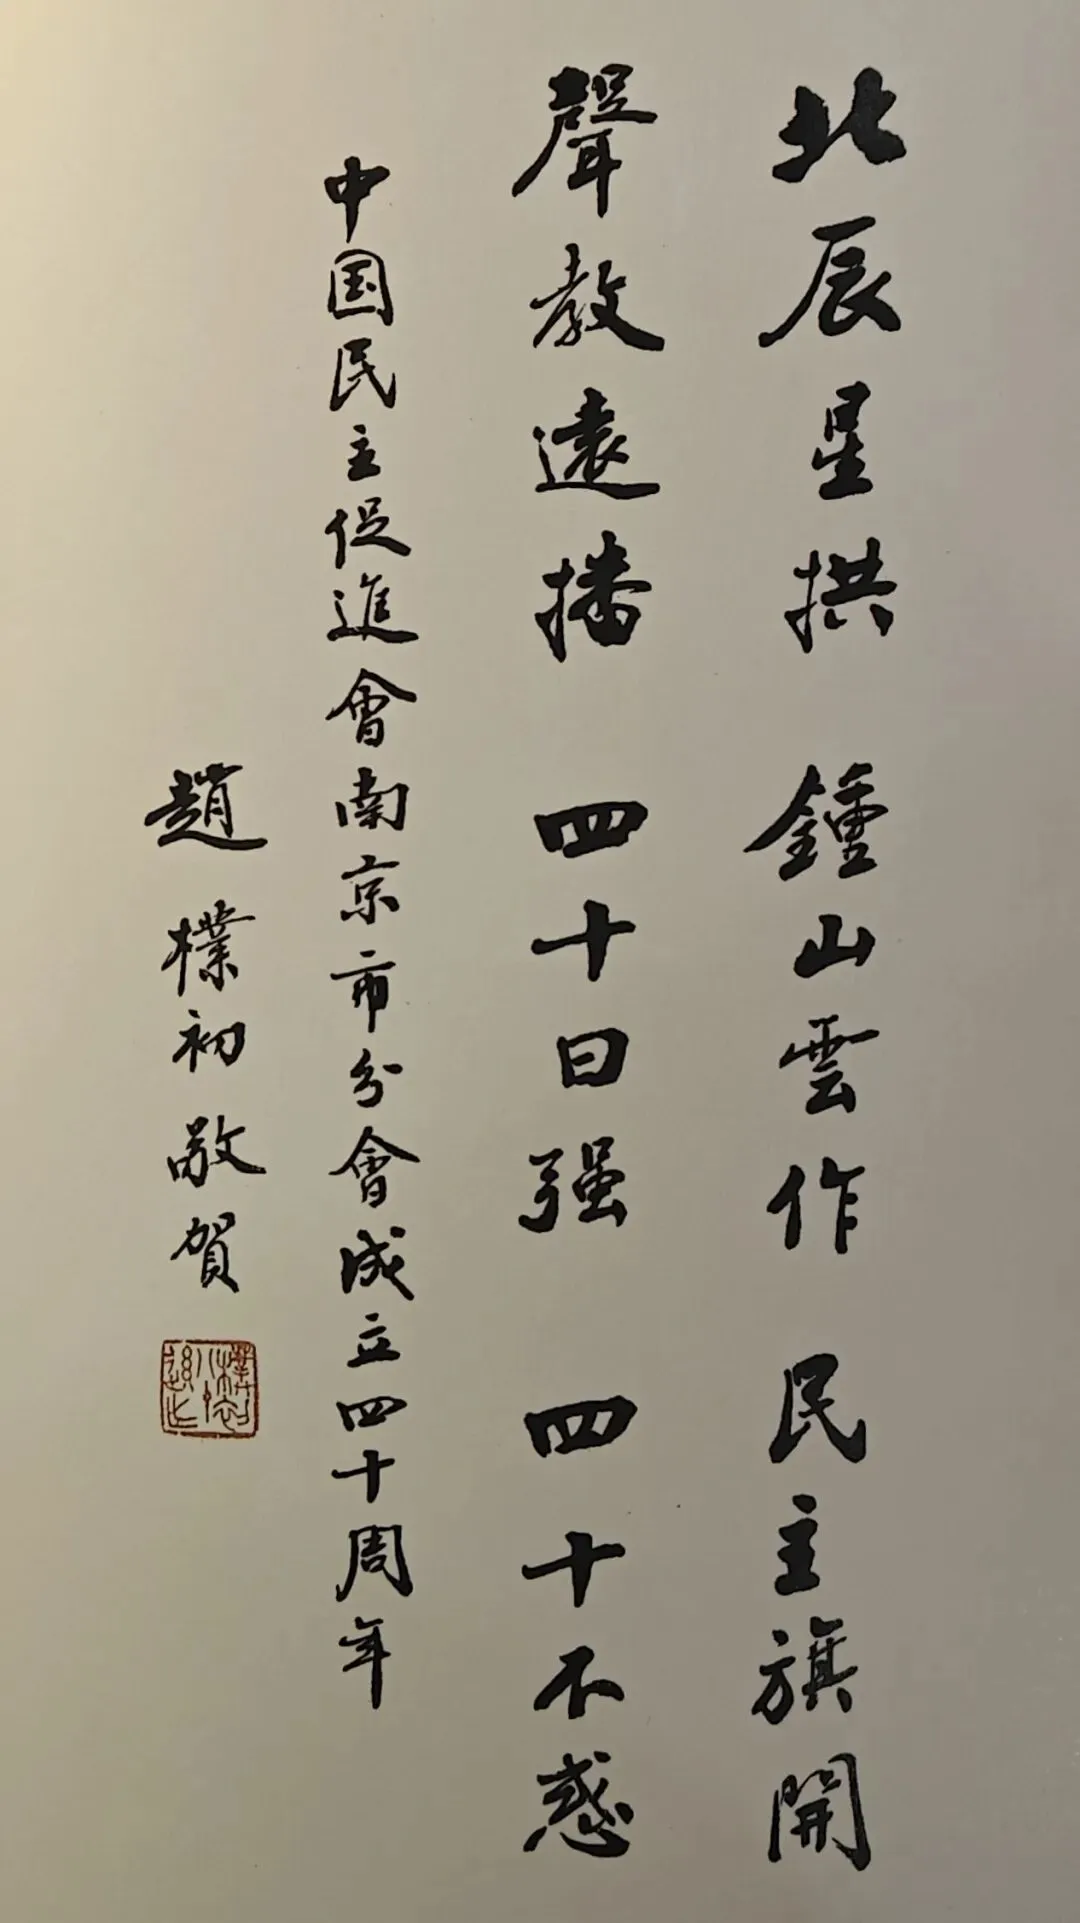 北辰星拱 鍾山雲作 民主旗開
聲教遠播 四十曰强 四十不惑
中国民主促進會南京市分會成立四十周年
趙樸初敬賀